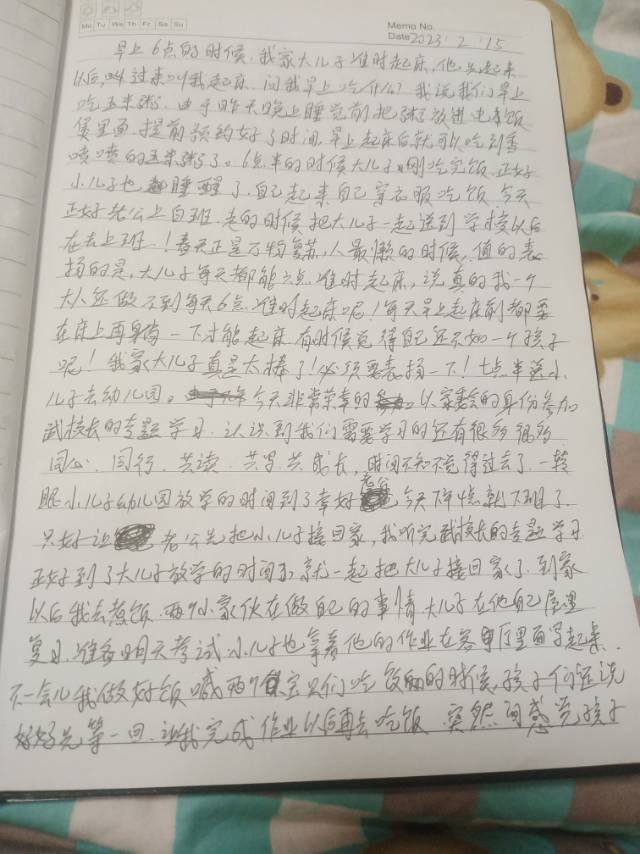 Mo Tu We Th Fr Sa Su
Memo No.
Date 2023.2.15
早上6点的时候,我家大儿子准时起床,他先起来
以后,叫过来叫我起床.问我早上吃什么?我说我们早上
吃玉米粥.由于昨天晚上睡觉前把粥放进电饭
煲里面.提前预约好了时间.早上起床后就可以吃到香
喷喷的玉米粥了。6点半的时候大儿子刚吃完饭.正好
小儿子也睡醒了.自己起来自己穿衣服吃饭.今天
正好老公上白班.走的时候把大儿子一起送到学校以后
在去上班.!春天正是万物复苏,人最懒的时候,值的表
扬的是,大儿子每天都能六点准时起床,说真的我一个
大人还做不到每天6点准时起床呢!每天早上起床前都要
在床上再身有一下才能起床.有时候觉得自己还不如一个孩子
呢!我家大儿子真是太棒了!必须要表扬一下!七点半送小
儿子去幼儿园。今天非常荣幸的以家委会的身份参加
武校长的专题学习.认识到我们需要学习的还有很多很多
同心.同行.共读.共学.共成长,时间不知不觉得过去了.一转
眼小儿子幼儿园放学的时间到了幸好老公今天下午4点就下班了
只好让老公先把小儿子接回家,我听完武校长的专题学习
正好到了大儿子放学的时间了,就一起把大儿子接回家了.到家
以后我去煮饭.两个小家伙在做自己的事情.大儿子在他自己屋里
复习.准备明天考试.小儿子也拿着他的作业在客厅里面写起来.
不一会儿我做好饭喊两个宝贝们吃饭的时候,孩子们还说
好好先等一回.让我完成作业以后再去吃饭.突然间感觉孩子